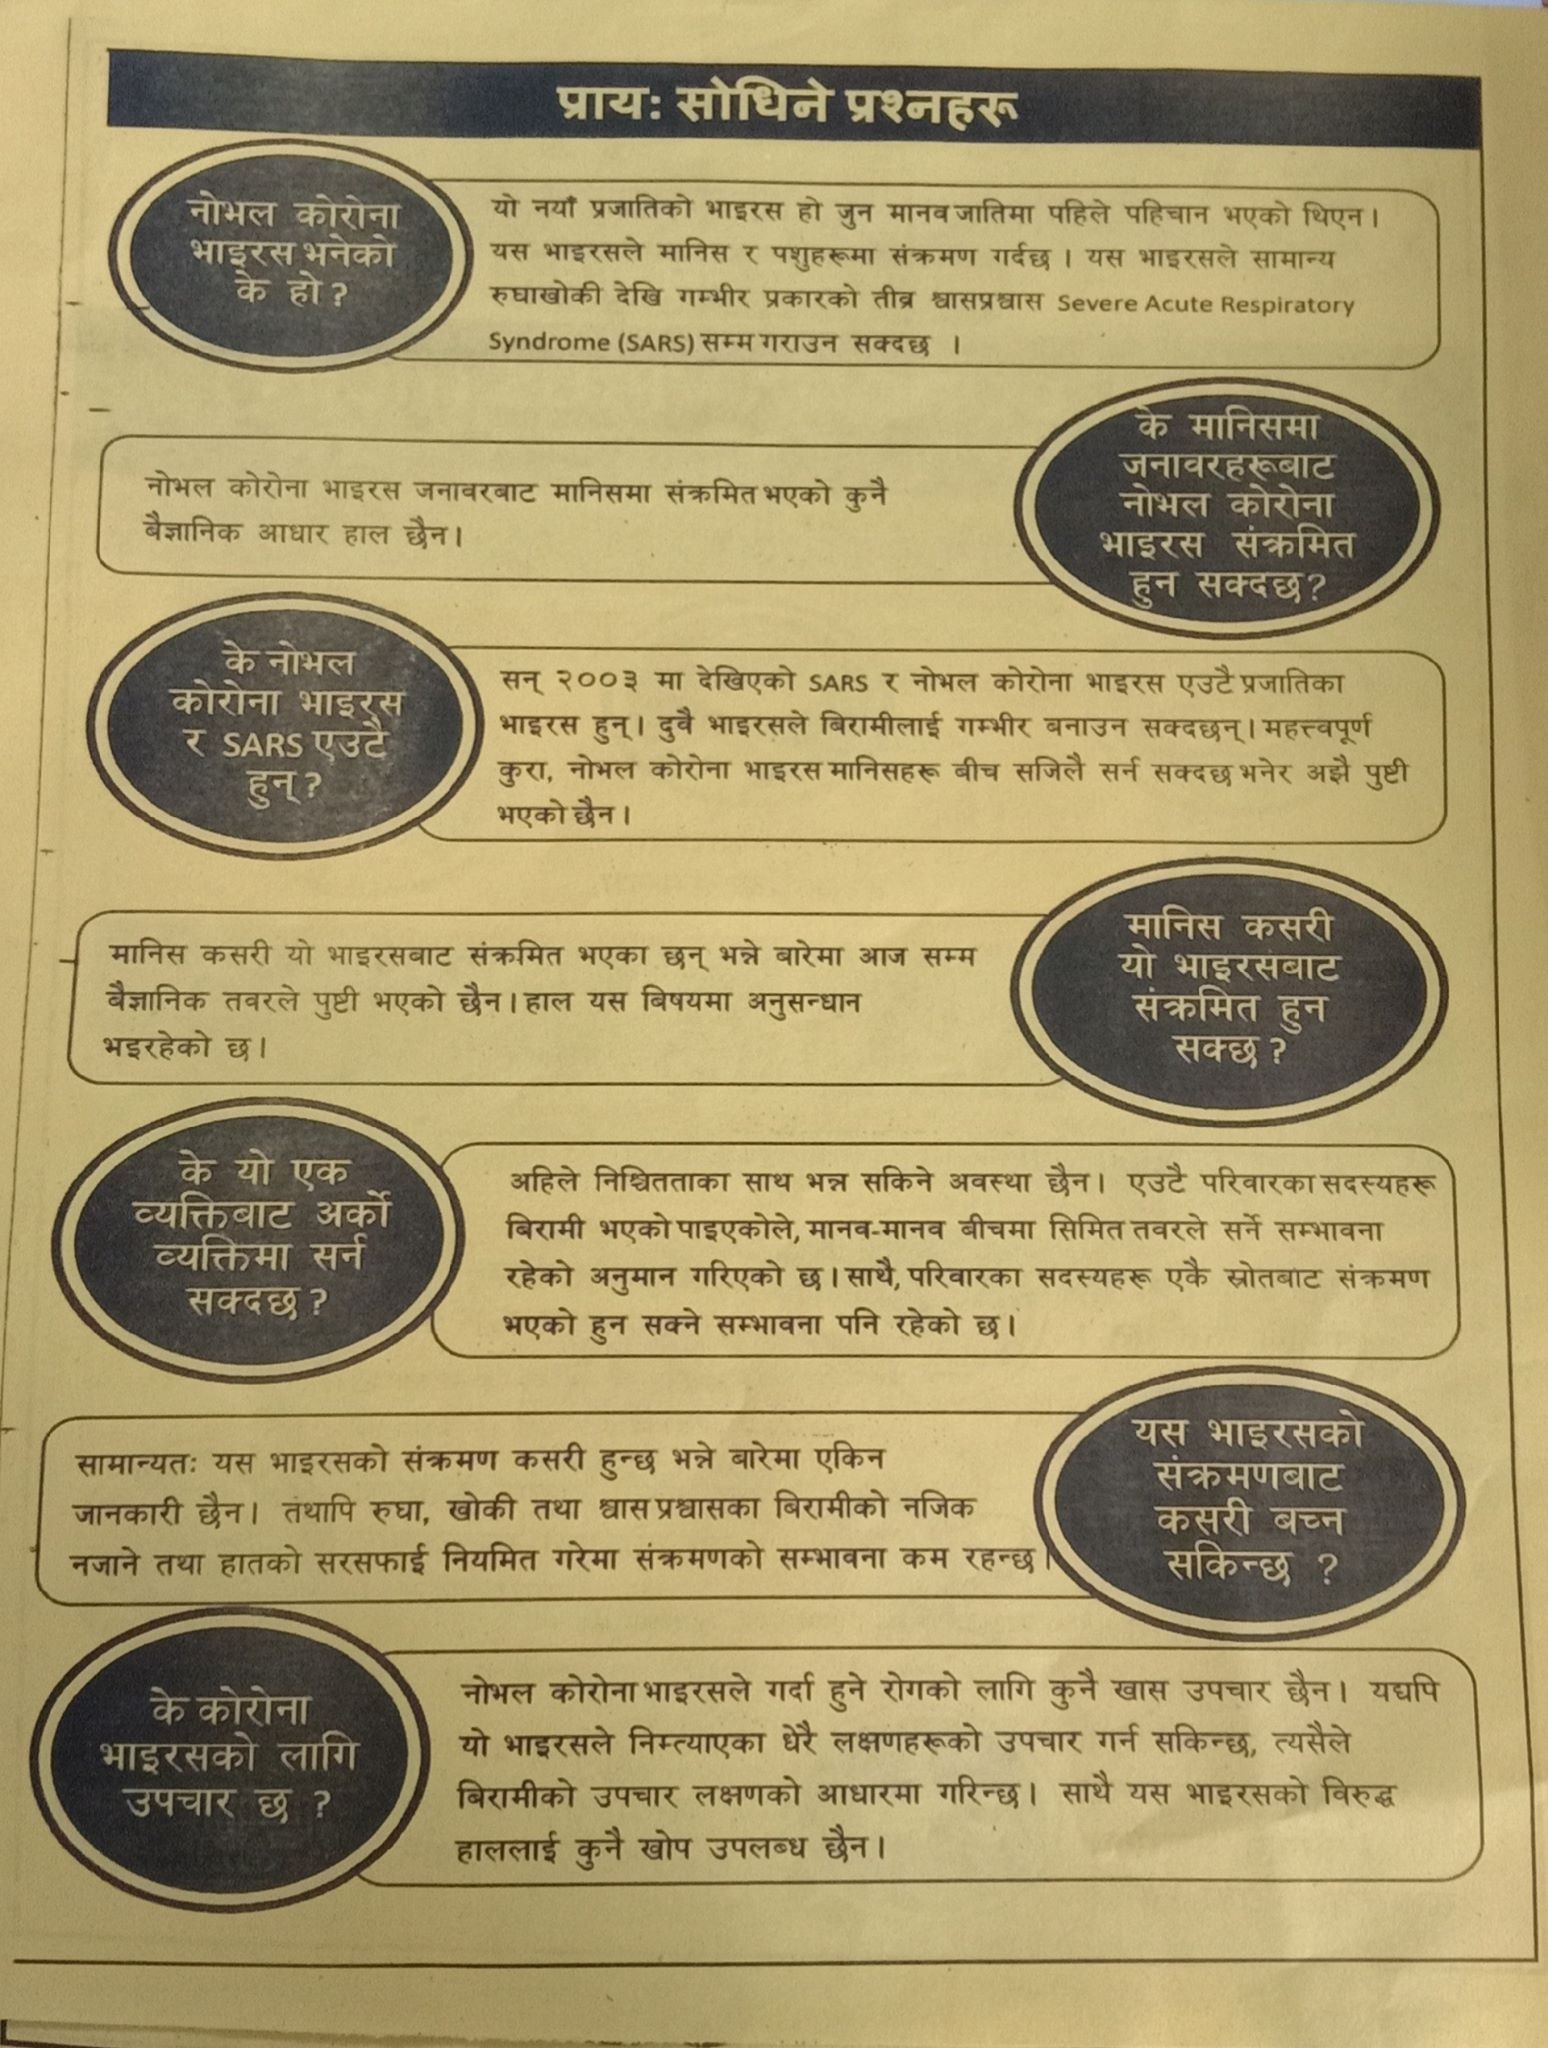 प्रायः सोधिने प्रश्नहरू
नोभल कोरोना
भाइरस भनेको
के हो?
यो नयाँ प्रजातिको भाइरस हो जुन मानव जातिमा पहिले पहिचान भएको थिएन।
यस भाइरसले मानिस र पशुहरूमा संक्रमण गर्दछ । यस भाइरसले सामान्य
रुघाखोकी देखि गम्भीर प्रकारको तीव्र श्वासप्रश्वास Severe Acute Respiratory
Syndrome (SARS) सम्म गराउन सक्दछ ।
के मानिसमा
जनावरहरूबाट
नोभल कोरोना
भाइरस संक्रमित
हुन सक्दछ?
नोभल कोरोना भाइरस जनावरबाट मानिसमा संक्रमित भएको कुनै
बैज्ञानिक आधार हाल छैन।
के नोभल
कोरोना भाइरस
र SARS एउटै
हुन्?
सन् २००३ मा देखिएको SARS र नोभल कोरोना भाइरस एउटै प्रजातिका
भाइरस हुन्। दुवै भाइरसले बिरामीलाई गम्भीर बनाउन सक्दछन्। महत्त्वपूर्ण
कुरा, नोभल कोरोना भाइरस मानिसहरू बीच सजिलै सर्न सक्दछ भनेर अझै पुष्टी
भएको छैन।
मानिस कसरी
यो भाइरसबाट
संक्रमित हुन
सक्छ?
मानिस कसरी यो भाइरसबाट संक्रमित भएका छन् भन्ने बारेमा आज सम्म
बैज्ञानिक तवरले पुष्टी भएको छैन। हाल यस बिषयमा अनुसन्धान
भइरहेको छ।
के यो एक
व्यक्तिबाट अर्को
व्यक्तिमा सर्न
सक्दछ?
अहिले निश्चितताका साथ भन्न सकिने अवस्था छैन। एउटै परिवारका सदस्यहरू
बिरामी भएको पाइएकोले, मानव-मानव बीचमा सिमित तवरले सर्ने सम्भावना
रहेको अनुमान गरिएको छ। साथै, परिवारका सदस्यहरू एकै स्रोतबाट संक्रमण
भएको हुन सक्ने सम्भावना पनि रहेको छ।
यस भाइरसको
संक्रमणबाट
कसरी बच्न
सकिन्छ ?
सामान्यतः यस भाइरसको संक्रमण कसरी हुन्छ भन्ने बारेमा एकिन
जानकारी छैन। तथापि रुघा, खोकी तथा श्वास प्रश्वासका बिरामीको नजिक
नजाने तथा हातको सरसफाई नियमित गरेमा संक्रमणको सम्भावना कम रहन्छ।
के कोरोना
भाइरसको लागि
उपचार छ ?
नोभल कोरोना भाइरसले गर्दा हुने रोगको लागि कुनै खास उपचार छैन। यद्यपि
यो भाइरसले निम्त्याएका धेरै लक्षणहरूको उपचार गर्न सकिन्छ, त्यसैले
बिरामीको उपचार लक्षणको आधारमा गरिन्छ। साथै यस भाइरसको विरुद्ध
हाललाई कुनै खोप उपलब्ध छैन।